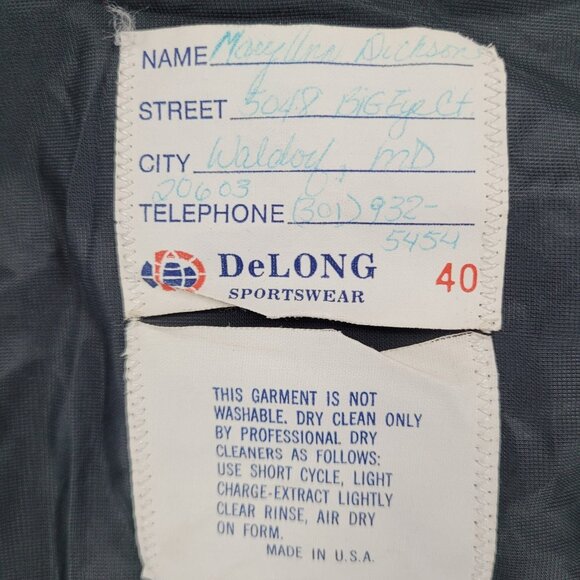 NAME MaryAnn Dickson
STREET 5048 BiG Eye Ct
CITY Waldorf, MD
20603
TELEPHONE (301) 932-
5454
DeLONG 40
SPORTSWEAR
THIS GARMENT IS NOT
WASHABLE. DRY CLEAN ONLY
BY PROFESSIONAL DRY
CLEANERS AS FOLLOWS:
USE SHORT CYCLE, LIGHT
CHARGE-EXTRACT LIGHTLY
CLEAR RINSE, AIR DRY
ON FORM.
MADE IN U.S.A.